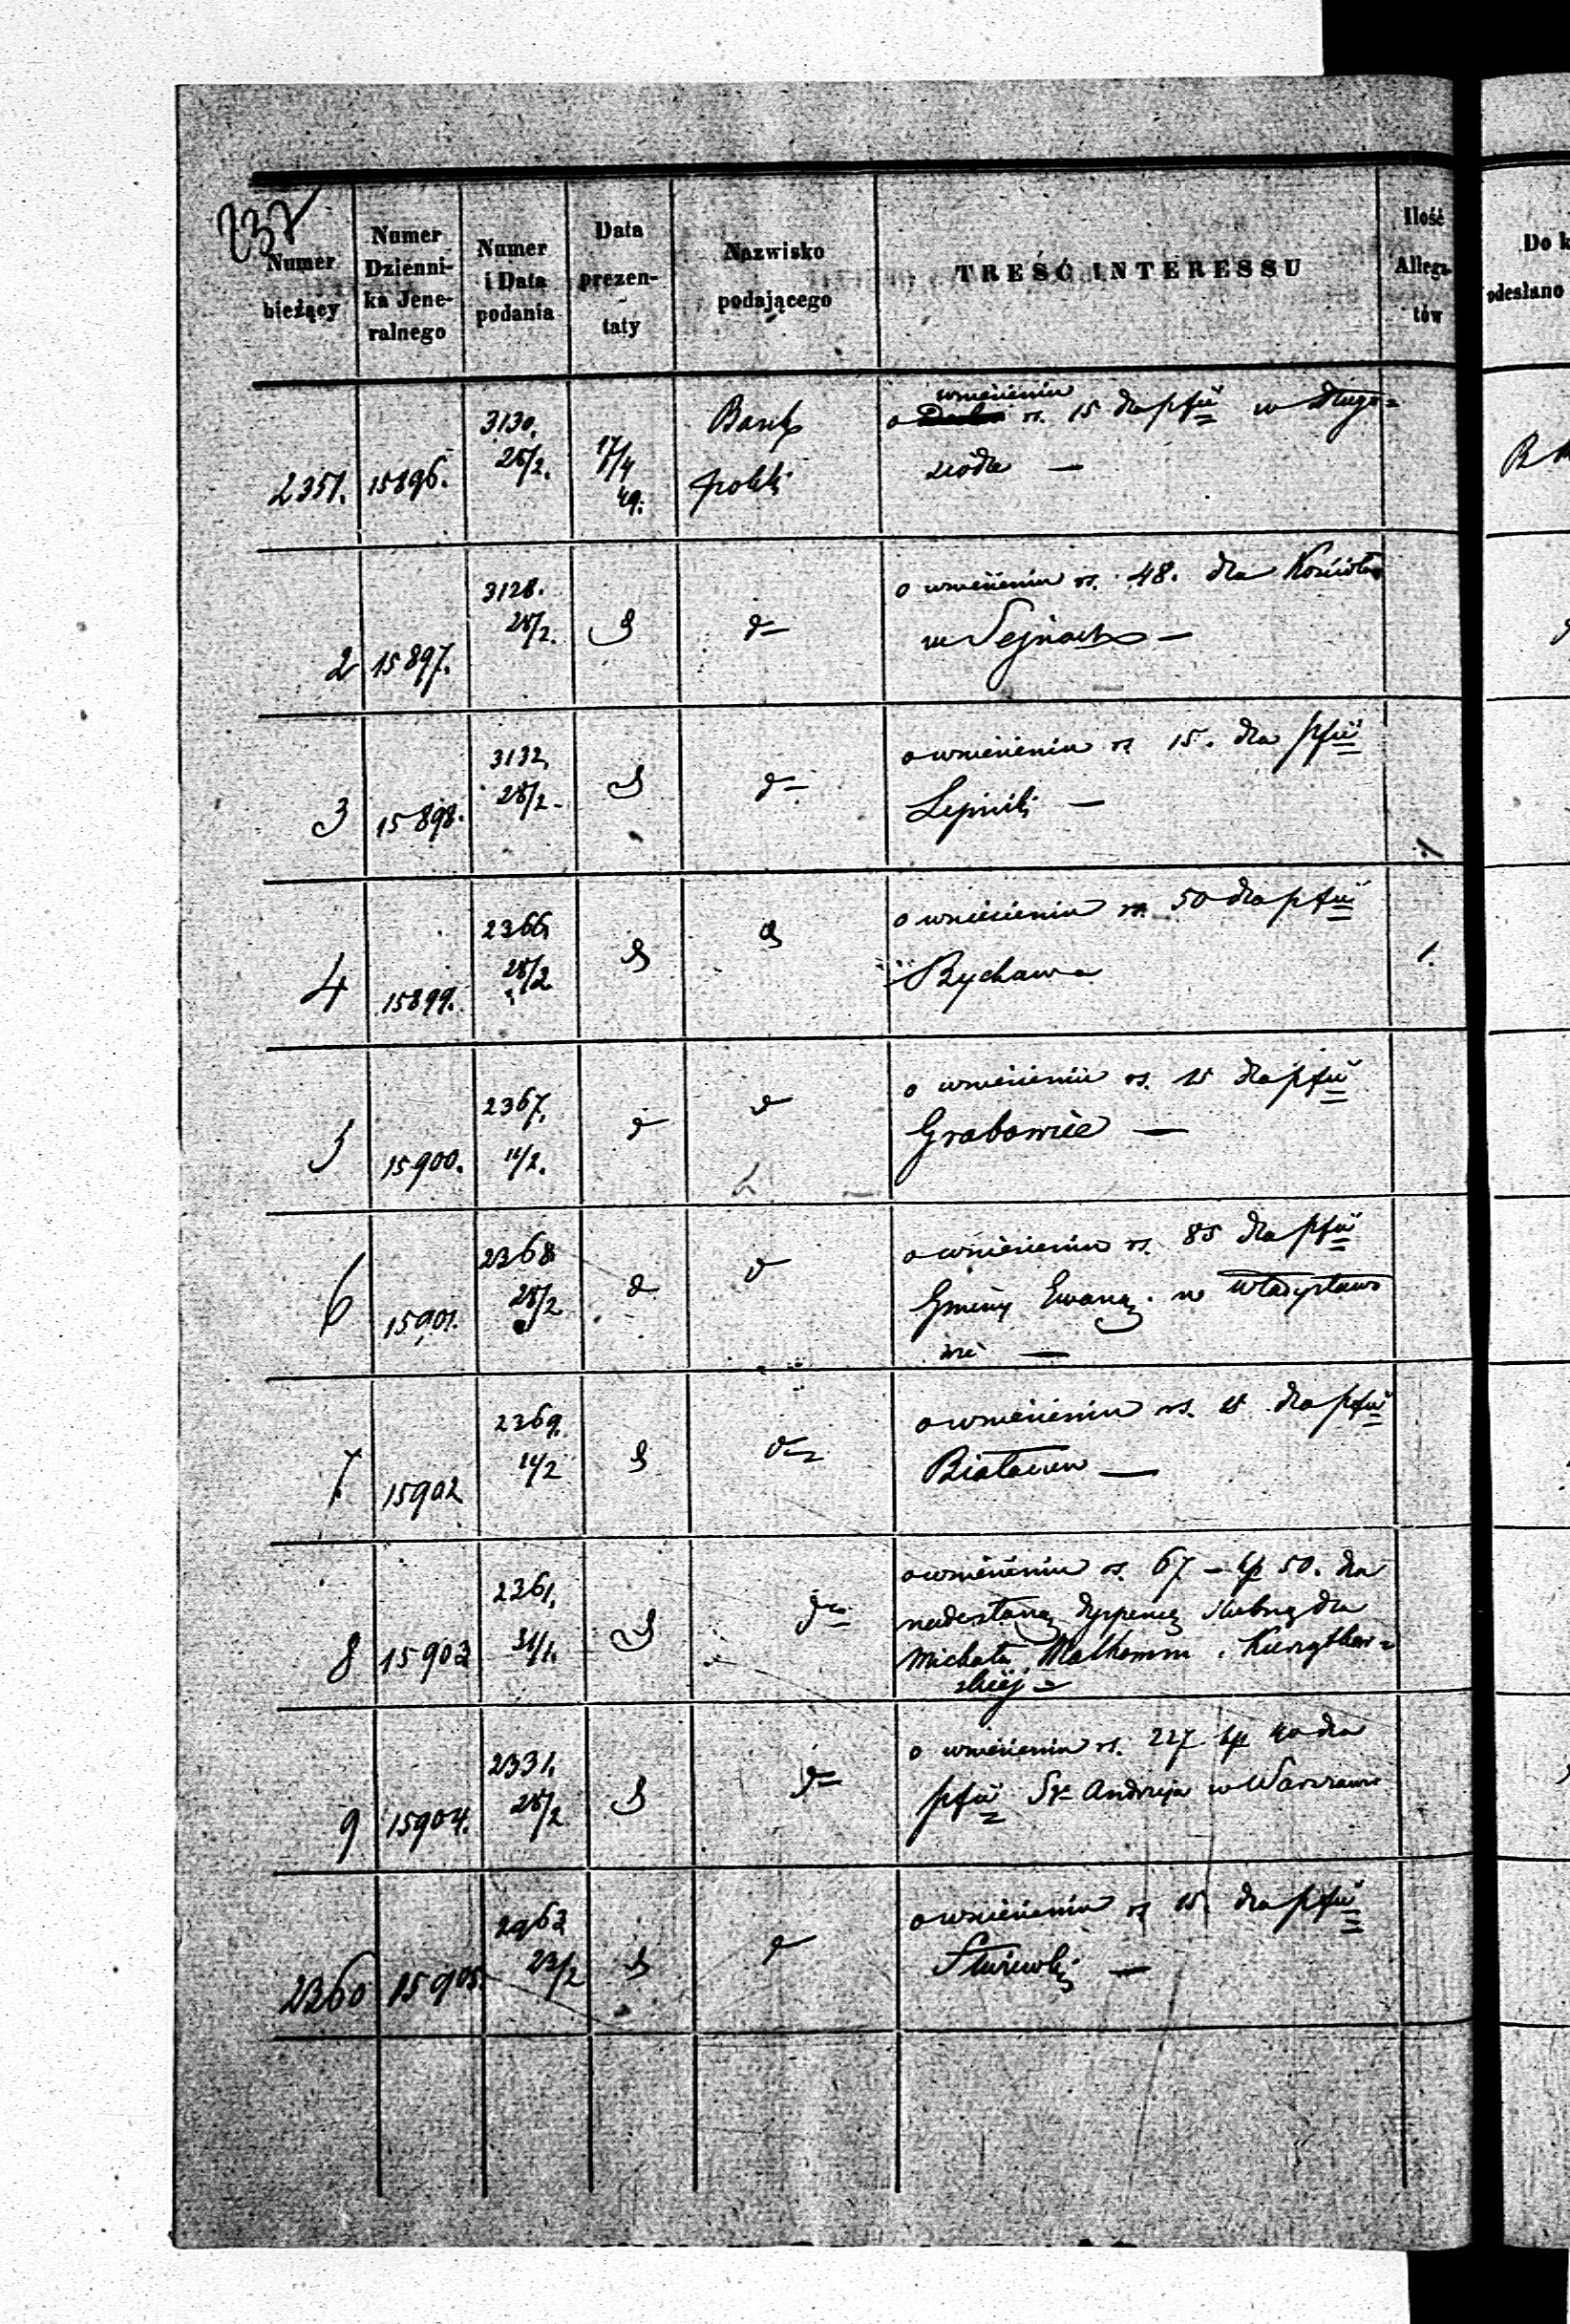 237
Numer bieżący
Numer Dzienni- ka Jene- ralnego
Numer i Data podania
Data prezen- taty
Nazwisko podającego
TREŚĆ INTERESSU
Ilość Allega- tów
Do k
odesłano
2351. 15896. 3130. 28/2. 17/4 49. Bank polski
o wniesieniu rs. 15 dla pfii w Długo=
siodle —
2 15897. 3128. 28/2. d d—
o wniesieniu rs. 48. dla Kościoła
w Sejnach —
3 15898. 3132, 28/2. d d—
o wniesieniu rs. 15. dla pfii
Lipniki —
4 15899. 2366, 28/2 d d 1.
o wniesieniu rs. 50 dla pfii
Bychawa
5 15900. 2367. 11/2. d d
o wniesieniu rs. 15 dla pfii
Grabowiec —
6 15901. 2368 28/2 d d
o wniesieniu rs. 85 dla pfii
Gminy Ewang. w Władysławo
wie —
7 15902 2369. d d—
o wniesieniu rs. 15 dla pfii
—
8 15903 2361. 31/1. d d—
o wniesieniu rs. 67 – kp 50. dla
nadesłaną dyspensę ślubną dla
Michała
skiej —
9 15904. 2331. 28/2 d d—
o wniesieniu rs. 227 kp dla
pfii Sx Andrzeja w Warszawie
2360 15905. 2963 23/2 d d
o wniesieniu rs 15. dla pfii
—